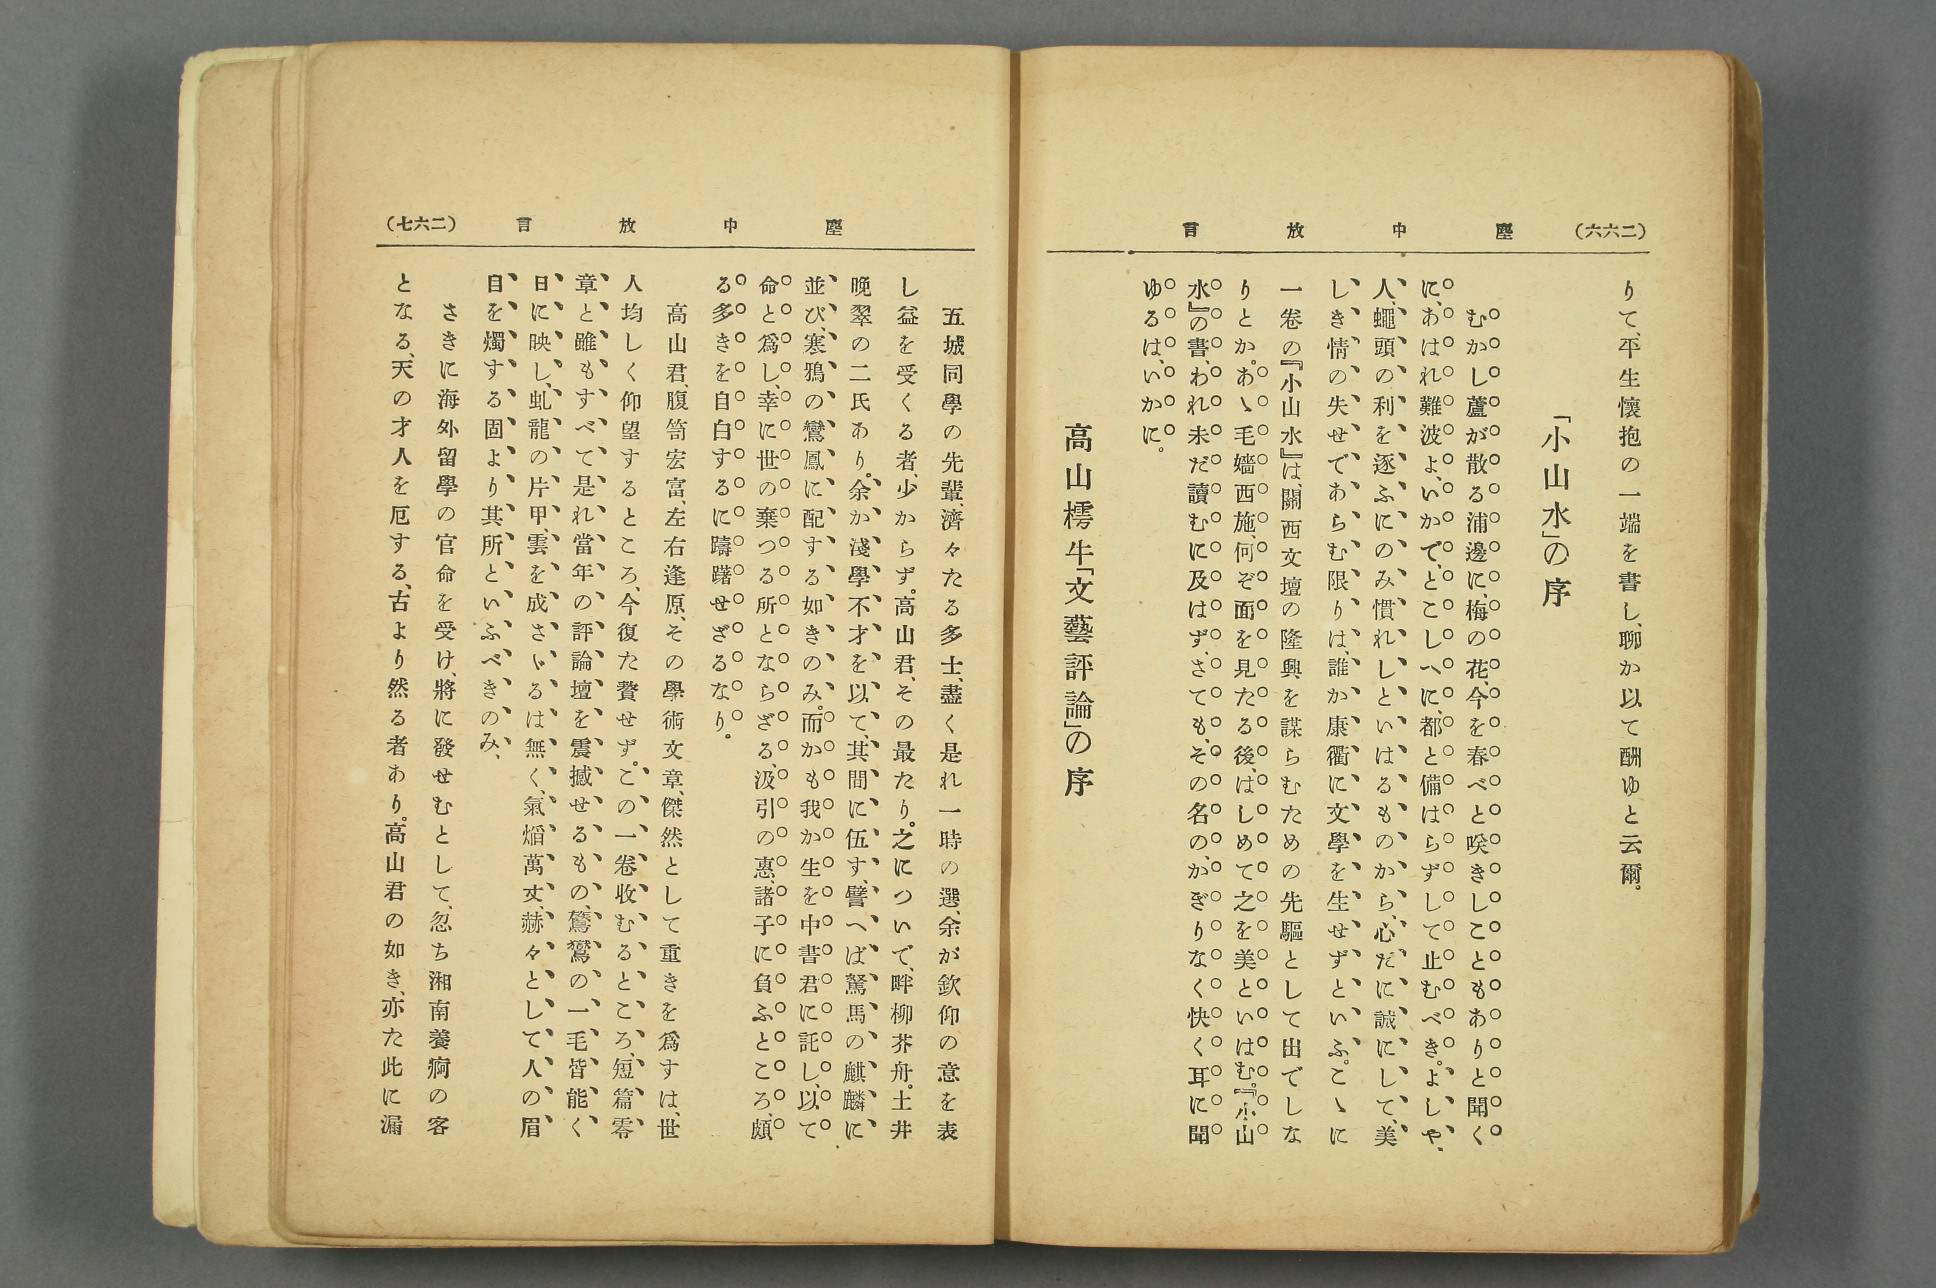 (二六六)
塵中放言
りて、平生懷抱の一端を書し、聊か以て酬ゆと云爾。
「小山水」の序
むかし蘆が散る浦邊に、梅の花、今を春べと咲きしこともありと聞く
に、あはれ難波よ、いかで、とこしへに、都と備はらずして止むべき。よしや、
人、蠅頭の利を逐ふにのみ慣れしといはるものから、心だに誠にして、美
しき情の失せであらむ限りは、誰か康衢に文學を生せずといふ。こゝに
一卷の『小山水』は、關西文壇の隆興を謀らむための先驅として出でしな
りとか。あゝ毛嬙西施、何ぞ面を見たる後、はしめて之を美といはむ。『小山
水』の書、われ未だ讀むに及はず、さても、その名のかぎりなく快く耳に聞
ゆるは、いかに。
高山樗牛「文藝評論」の序
(二六七)
塵中放言
五城同學の先輩、濟々たる多士、盡く是れ一時の選、余が欽仰の意を表
し益を受くる者、少からず。高山君、その最たり。之について、畔柳芥舟。土井
晩翠の二氏あり。余か淺學不才を以て、其間に伍す、譬へば駑馬の麒麟に
並び、寒鴉の鸞鳳に配する如きのみ。而かも我か生を中書君に託し、以て
命と爲し、幸に世の棄つる所とならざる、汲引の惠、諸子に負ふところ、頗
る多きを自白するに躊躇せざるなり。
高山君、腹笥宏富、左右逢原、その學術文章、傑然として重きを爲すは、世
人均しく仰望するところ、今復た贅せず。この一卷收むるところ、短篇零
章と雖もすべて是れ當年の評論壇を震撼せるもの、鷟鸑の一毛皆能く
日に映し、虬龍の片甲、雲を成さゞるは無く、氣熖萬丈、赫々として人の眉
目を燭する固より其所といふべきのみ、
さきに海外留學の官命を受け、將に發せむとして、忽ち湘南養痾の客
となる、天の才人を厄する、古より然る者あり。高山君の如き、亦た此に漏